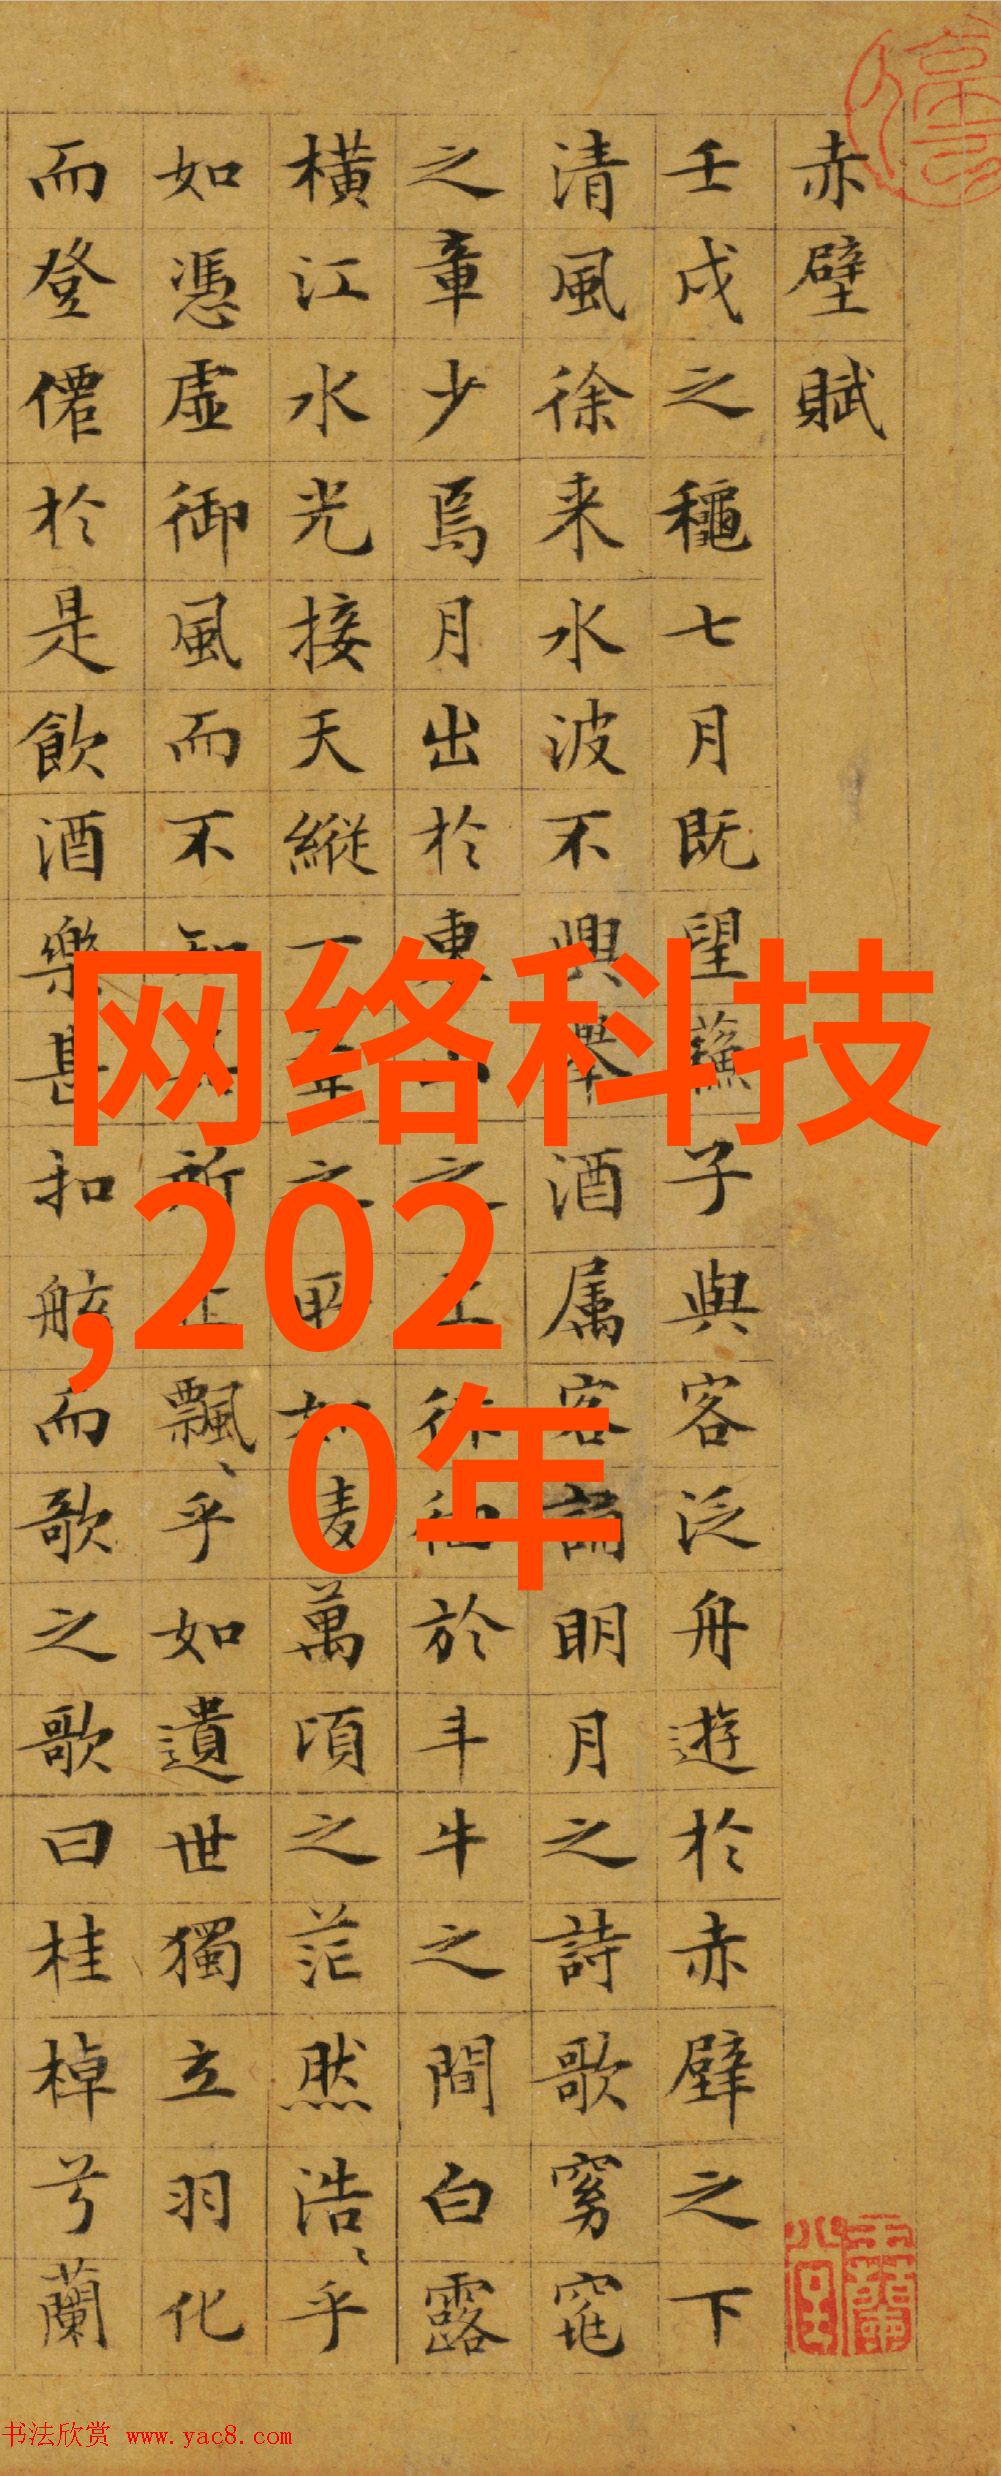 赤壁賦
壬戌之龝七月既望蘇子與客泛舟遊於赤壁之下
清風徐来水波不興舉酒属客誦明月之詩歌窈窕
之章少焉月出於東山之上徘徊於斗牛之間白露
橫江水光接天縱一葦之所如凌萬頃之茫然浩〻乎
如憑虛御風而不知其所止飄〻乎如遺世獨立羽化
而登僊於是飲酒樂甚扣舷而歌之歌曰桂棹兮蘭
网络科技
,202
0年
书法欣赏 www.yac8.com